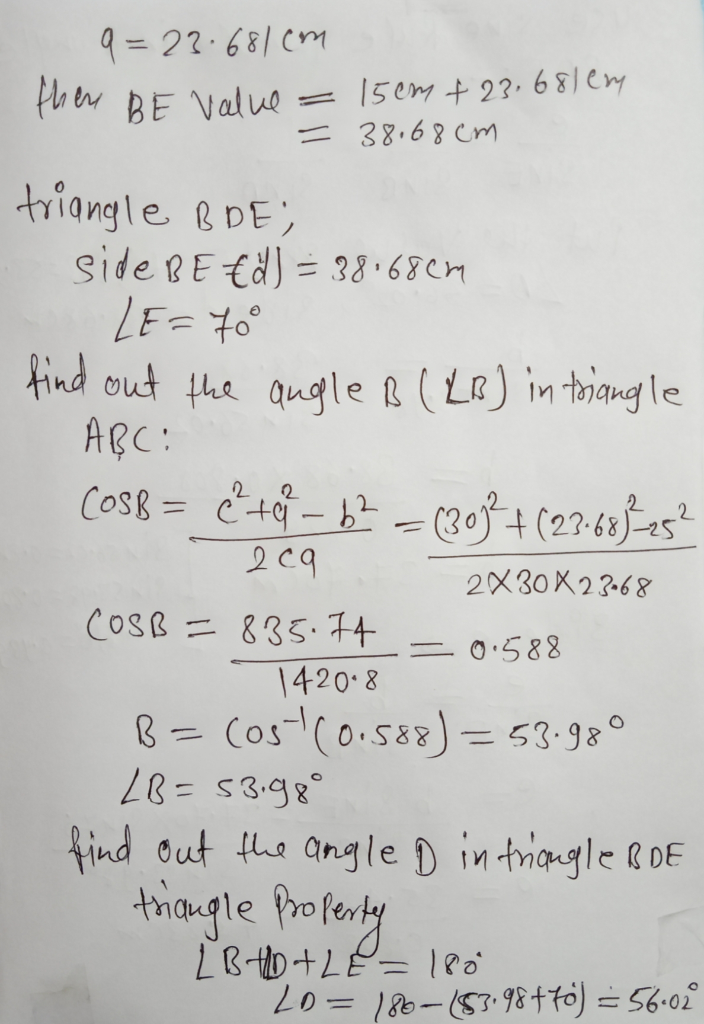 a = 23.681 cm
then BE Value = 15cm + 23.681cm
= 38.68 cm
triangle BDE;
side BE (d) = 38.68cm
∠E = 70°
find out the angle B (∠B) in triangle
ABC:
COSB = c²+a²-b² / 2ca = (30)²+(23.68)²-25² / 2×30×23.68
COSB = 835.74 / 1420.8 = 0.588
B = Cos⁻¹(0.588) = 53.98°
∠B = 53.98°
find out the angle D in triangle BDE
triangle Property
∠B+∠D+∠E = 180°
∠D = 180-(53.98+70) = 56.02°